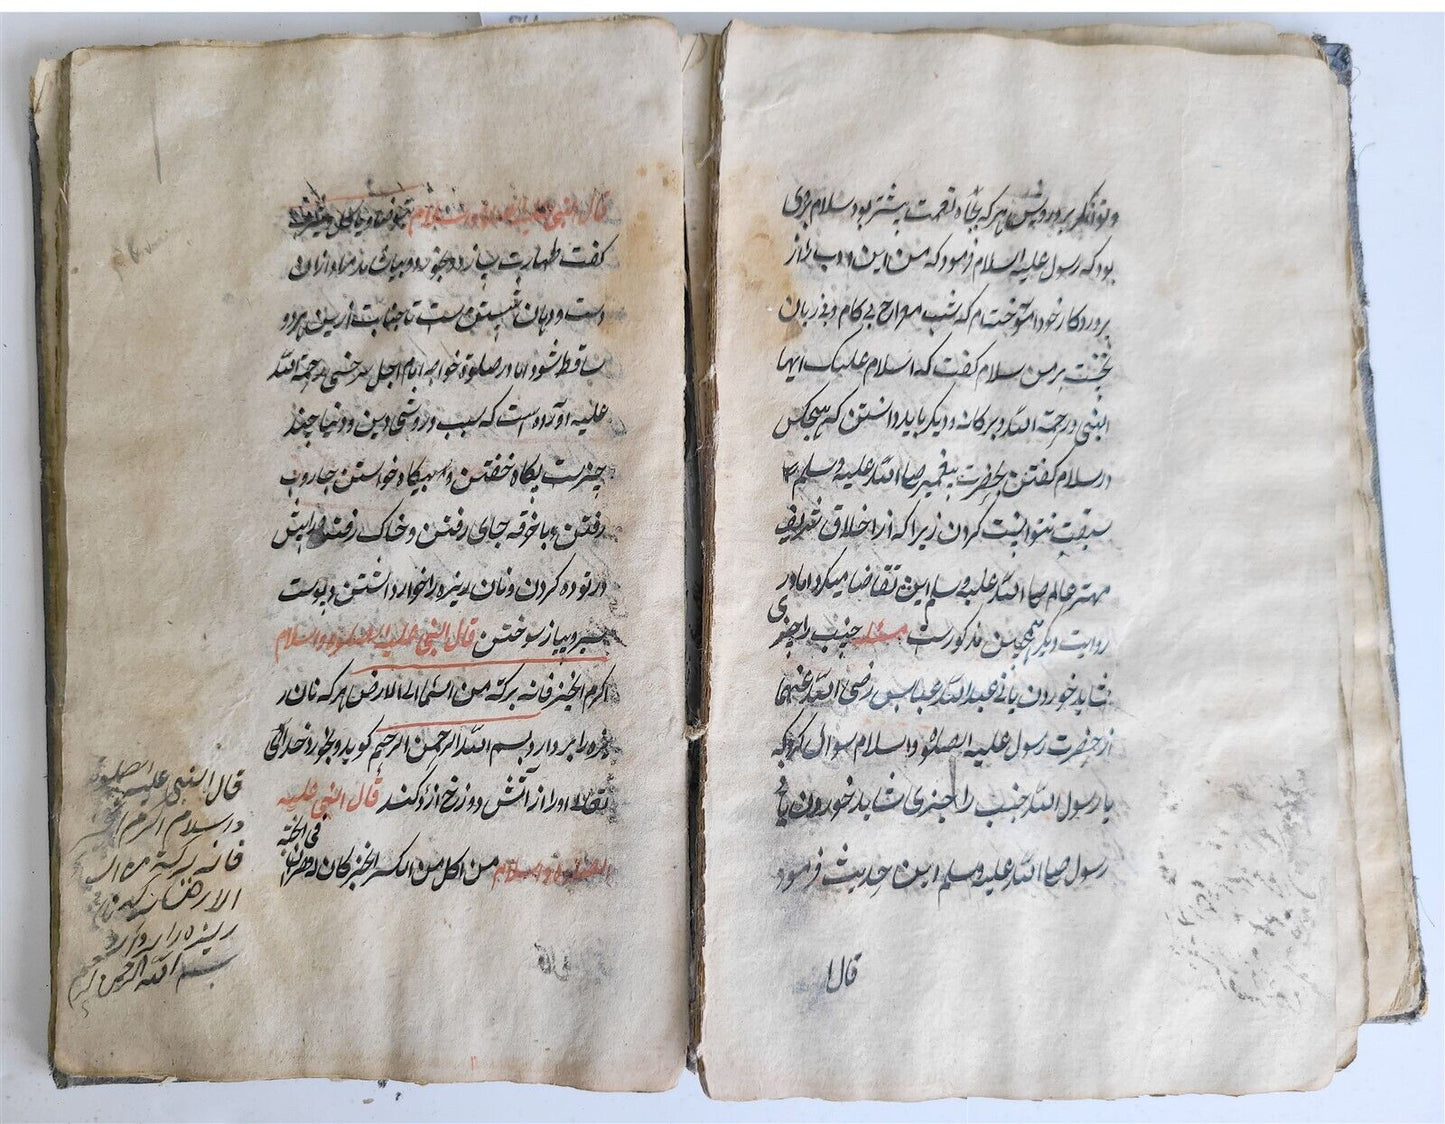 و توانگر بر درویش هر که بجاه و نعمت بیشتر بود سلام بروی
بود که رسول علیه السلام فرمود که من این ادب را از
پروردکار خود اموخته ام که شب معراج بی کام و بی زبان
نخست بر من سلام کفت که السلام علیک ایها
النبی و رحمة الله و برکاته و دیکر باید دانستن که هیچکس
در سلام کفتن بحضرت پیغمبر صلی الله علیه و سلم
سبقت نتوانست کردن زیرا که از اخلاق شریف
مهتر عالم صلی الله علیه و سلم این تقاضا میکرد اما در
روایت دیکر همچنین مذکورست مسئله جنب را چیزی
شاید خوردن یا نی عبد الله عباس رضی الله عنهما
از حضرت رسول علیه الصلوة و السلام سوال کرد که
یا رسول الله جنب را چیزی شاید خوردن یا نی
رسول صلی الله علیه و سلم این حدیث فرمود
قال
قال النبی علیه الصلوة و السلام
کفت طهارت سازد و بخورد و بیاشامد
دست و دهان شستن است تا جنابت ازین هر دو
ساقط شود اما در صلوة خواجه امام اجل سرخسی رحمة الله
علیه اورده است که سبب درویشی دین و دنیا چند
چیزست پکاه خفتن و خواستن جاروب
رفتن و با خرقه جای رفتن و خاک رفتن
در توده کردن و نان ریزه را خوار داشتن و پوست
سیر و پیاز سوختن قال النبی علیه الصلوة و السلام
اکرم الخبز فانه برکة من السماء الی الارض هر که نان ر
یزه را بردارد و بسم الله الرحمن الرحیم کوید و بخورد خدای
تعالی او را از آتش دوزخ ازاد کند قال النبی علیه
الصلوة و السلام من اکل من الکسر الخبز کان
فی الجنة
قال النبی علیه الصلوة
و السلام اکرم
فانه برکة من
الارض هر که نان
ریزه را بردارد
بسم الله الرحمن الرحیم